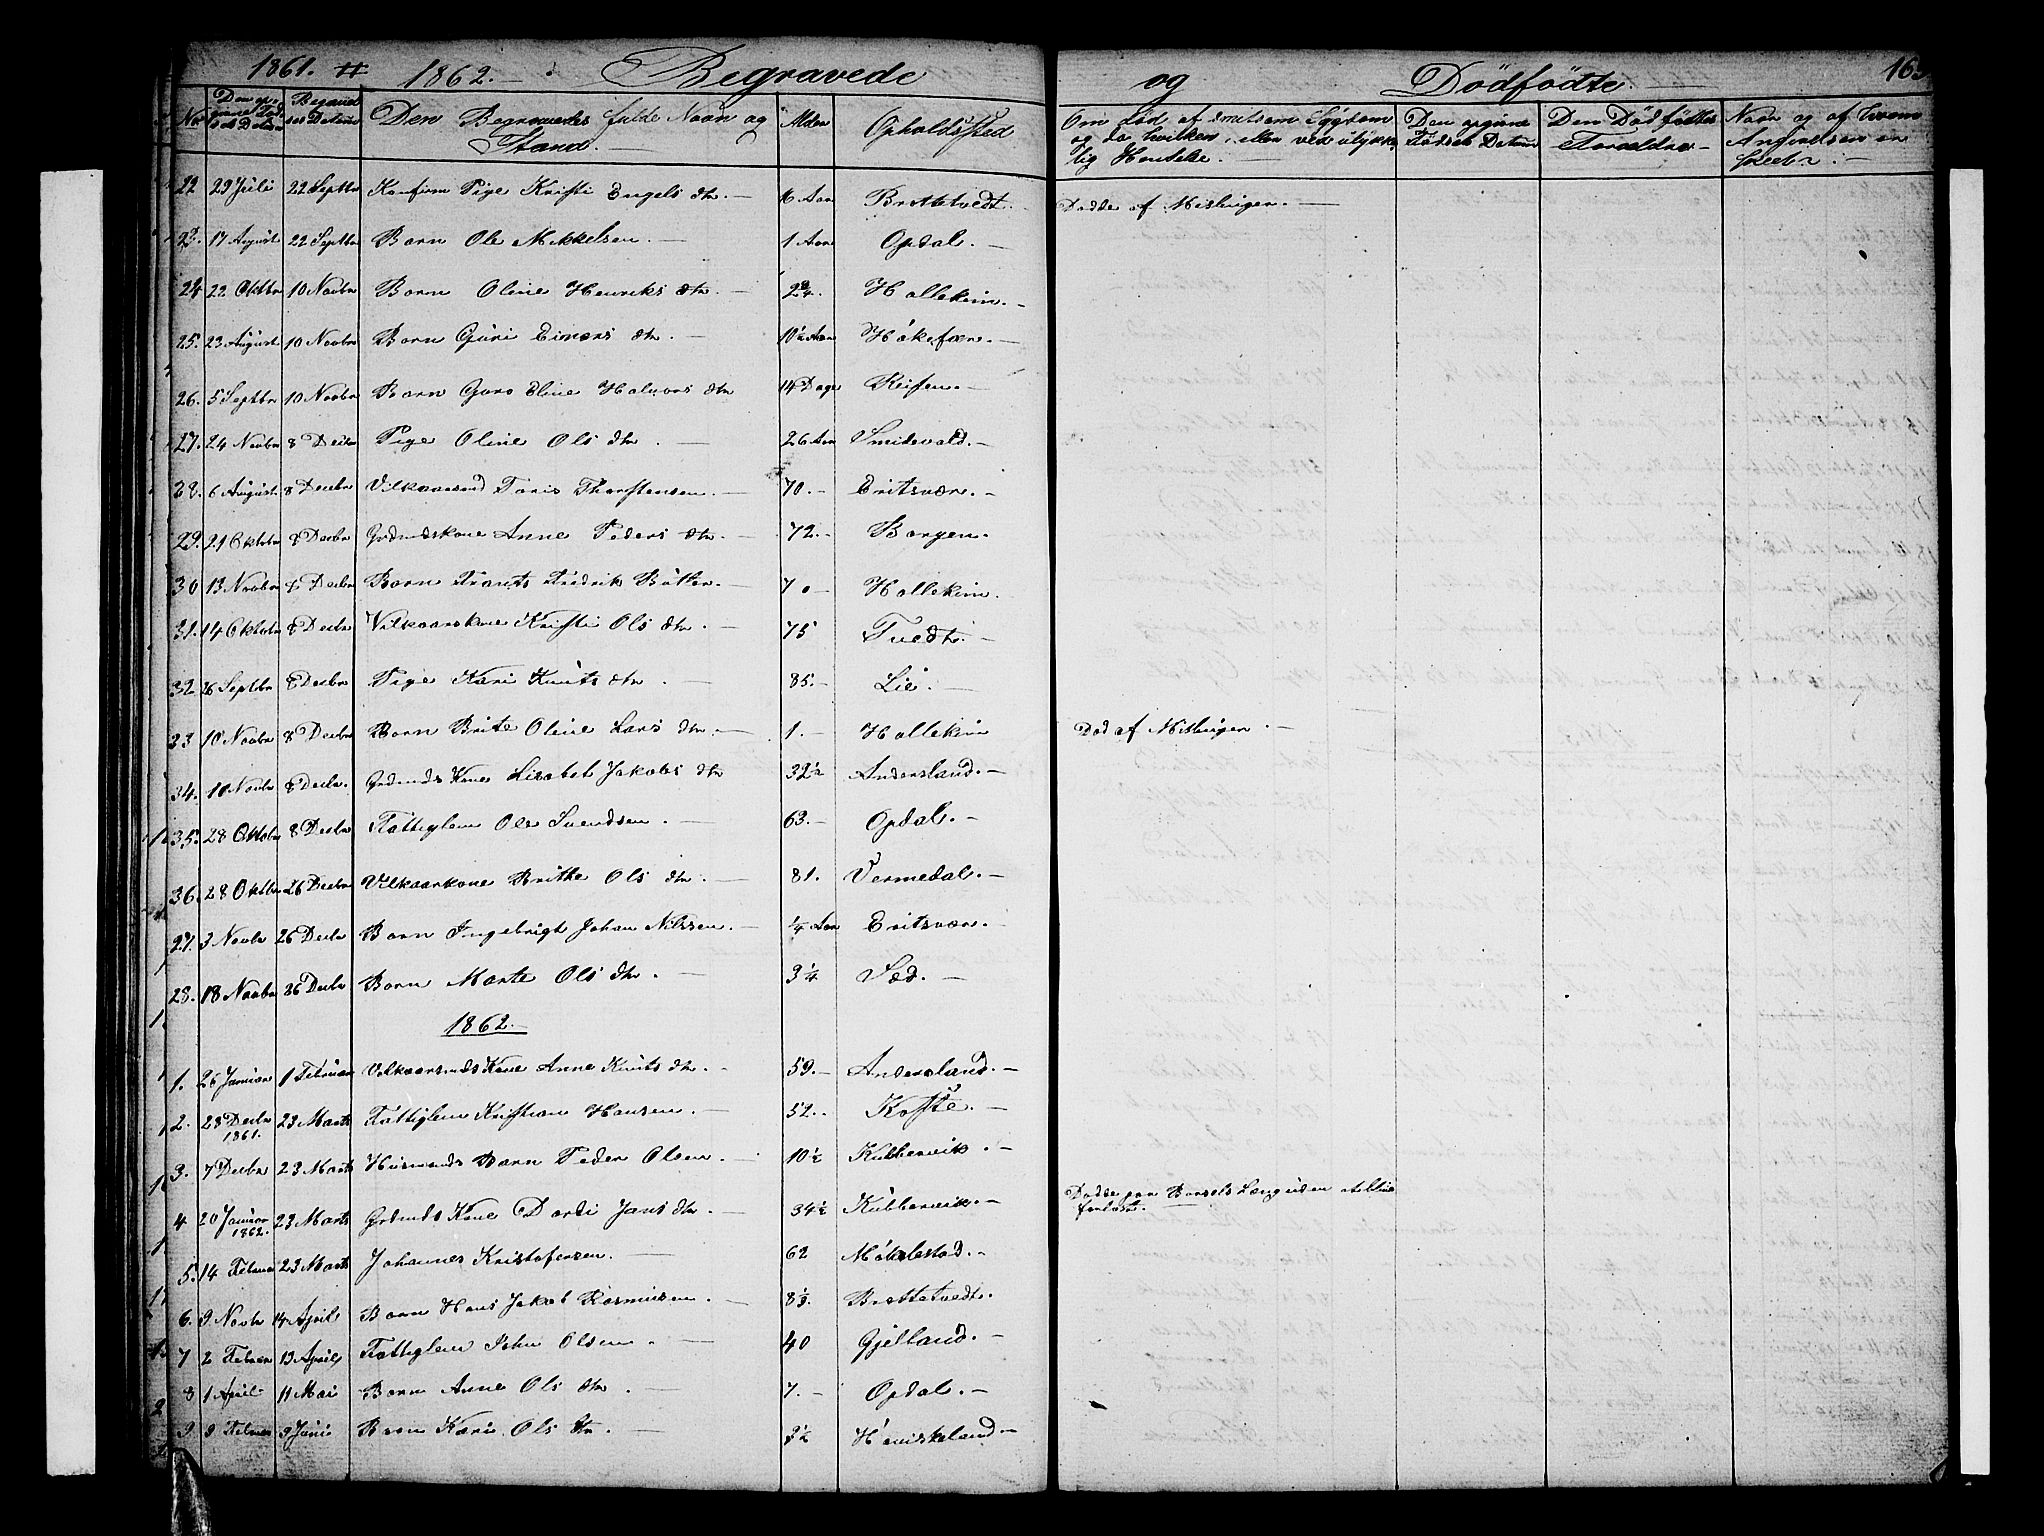 1861. # 1862. Begravede og Dödfödte. 163
No Den opgivne Döds Datum Begravelses Datum Den Begravedes fulde Navn og Stand. Alder Opholdssted Om Död af smitsom Sygdom og da hvilken, eller ved ulykkelig Hendelse. Den opgivne Födsels Datum Den Dödfödtes Forældre Navn og af hvem Anmeldelsen er skeet.
22 29 Juli 22 Septbr Konfirm Pige Kristi Engels dtr. 16 Aar Brattetvedt. Dödde af Mislinger.
23. 17 August 22 Septbr Barn Ole Mikkelsen. 1 Aar Opdal.
24 22 Oktbr 10 Novbr Barn Oline Henriks dtr. Hallekim.
25. 23 August 10 Novbr Barn Guri Einars dtr. 10½ Aar
26. 5 Septbr 10 Novbr Barn Guro Eline Halvors dtr 14 Dage Reifen.
27. 24 Novbr 8 Decbr Pige Oline Ols dtr. 26 Aar Smidevold.
28. 6 August 8 Decbr Vilkaarsmd Toris Thorstensen. 70. Eritsvær.
29. 21 Oktobr 8 Decbr Grdmdskone Anne Peders dtr. 72. Borgen.
30 13 Novbr 8 Decbr Barn Frants Fredrik Bötker. 7 Hallekim.
31. 14 Oktobr 8 Decbr Vilkaarskone Kristi Ols dtr. 75 Tvedt.
32 26 Septbr 8 Decbr Pige Kari Knuts dtr. 85. Lie.
33 10 Novbr 8 Decbr Barn Brite Oline Lars dtr. 1. Hallekim Död af Mislinger.
34. 10 Novbr 8 Decbr. Grdmds Kone Lisabet Jakobs dtr 32½ Andersland.
35. 28 Oktobr 8 Decbr Fattiglem Ole Svendsen. 63. Opdal.
36. 28 Oktbr 26 Decbr Vilkaarkone Britha Ols dtr. 81. Vermedal.
27. 3 Novbr 26 Decbr Barn Ingebrigt Johan Nilssen. ¼ Aar Eritsvær.
28. 18 Novbr 26 Decbr Barn Marte Ols dtr. 3¼ Sæd.
1862.
1. 26 Januar 1 Februar Vilkaarsmds Kone Anne Knuts dtr. 59. Andersland.
2. 28 Decbr 1861. 23 Marts Fattiglem Kristian Hansen. 52. Kaste.
3. 7 Decbr 23 Marts Husmands Barn Peder Olsen. 10½ Kubbervik.
4 20 Januar 1862. 23 Marts Grdmds Kone Dorti Jans dtr. 34½ Kubbervik. Dödde paa Barsels Læng uden at blive forlöst.
5. 14 Februar 23 Marts Johannes Kristofersen. 62 Möklestad.
6. 9 Novbr 14 April Barn Hans Jakob Rasmusen. 8⅓. Brattetvedt.
7 2 Februar 13 April Fattiglem John Olsen. 40 Gjelland.
8 1 April 11 Mai Barn Anne Ols dtr. 7. Opdal.
9 9 Februar 9 Juni Barn Kari Ols dtr. Haviskeland